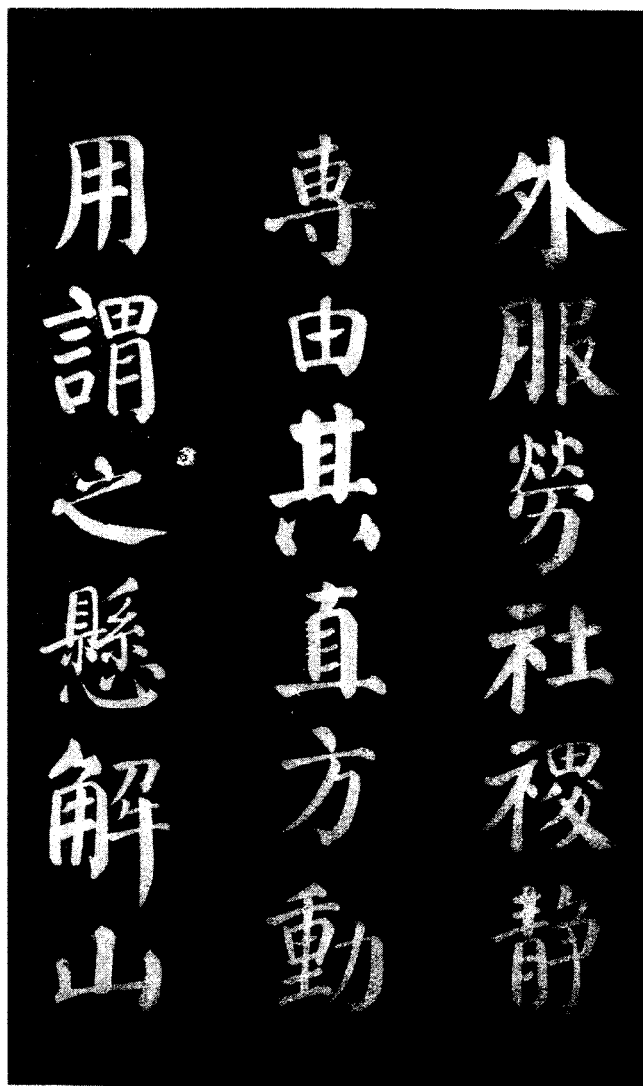 外服勞社稷静
專由其直方動
用謂之懸解山